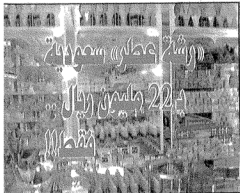 «رشة عطر» سعودية
بـ 22 مليون ريال..
فقط!!!